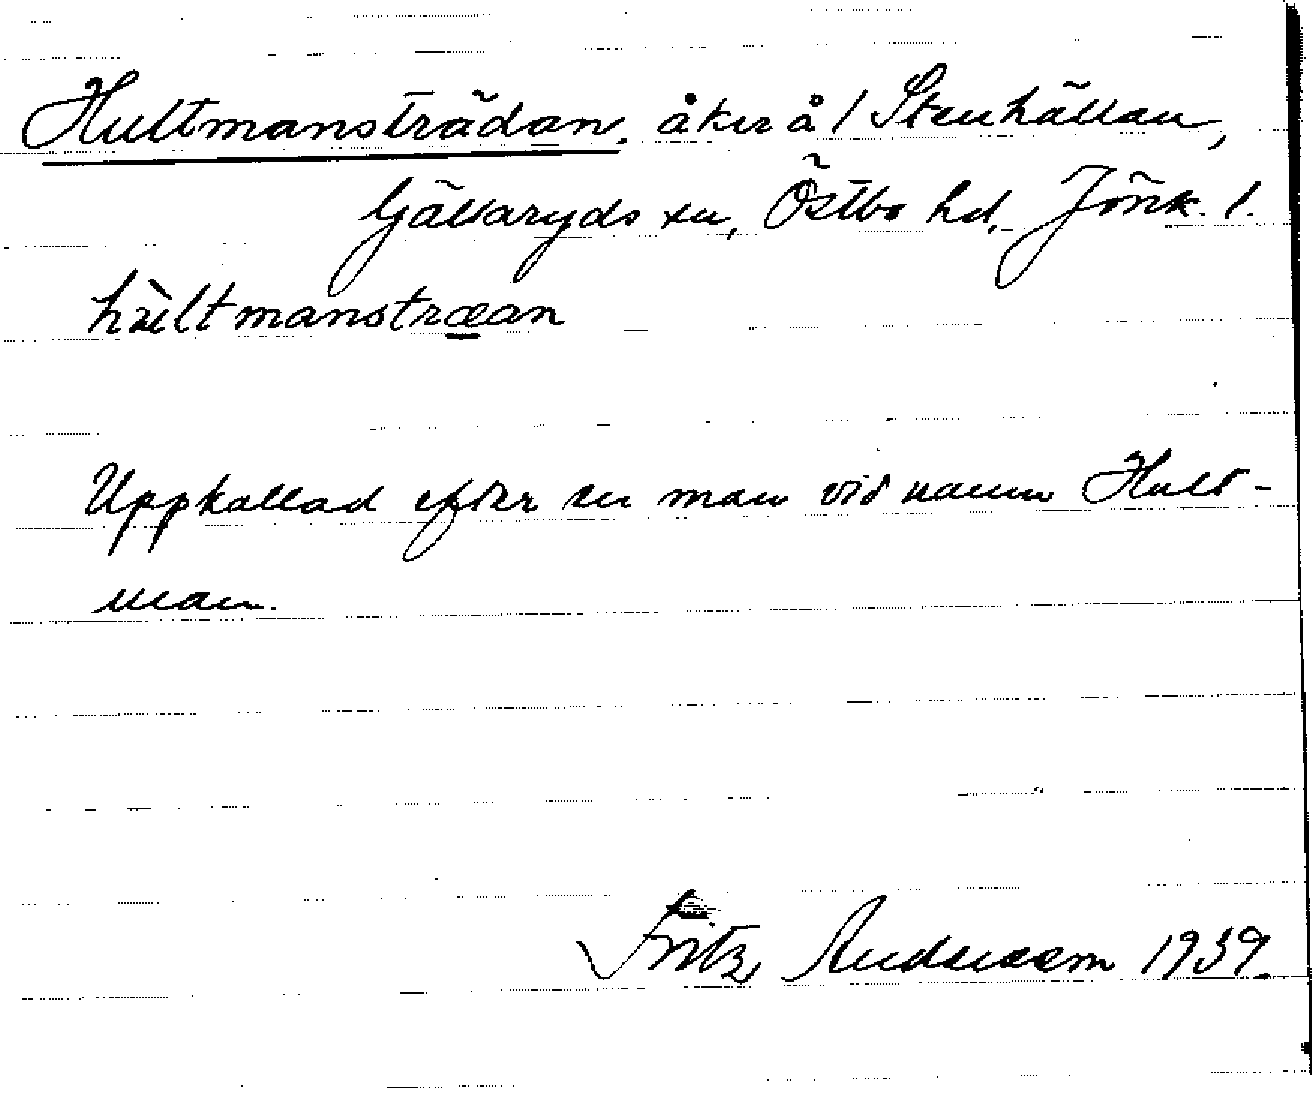 Hultmansträdan, åker å / Stenhällan,
Gällaryds sn, Östbo hd, Jönk. l.
hùltmanstræan
Uppkallad efter en man vid namn Hult-
man.
Fritz Andersson 1939